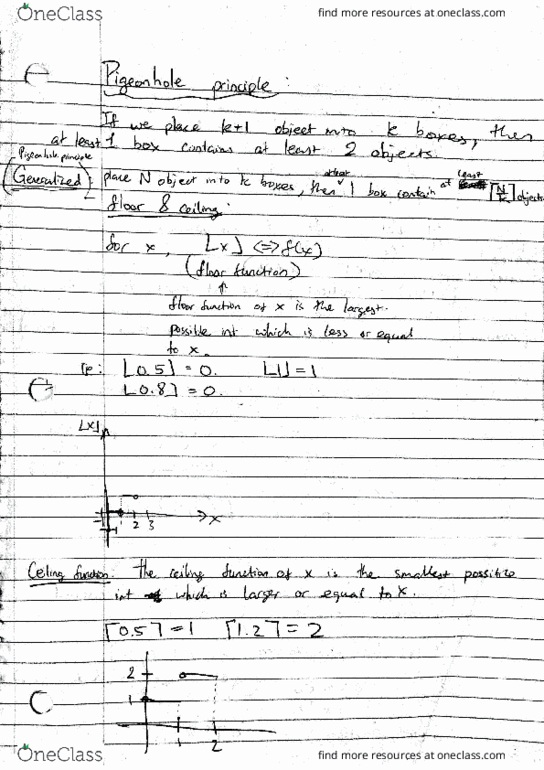 OneClass
find more resources at oneclass.com
Pigeonhole principle :
If we place k+1 object into k boxes, then
at least 1 box contains at least 2 objects.
Pigeonhole principle
(Generalized) : place N object into k boxes, then atleast 1 box contain at least ⌈N/k⌉ objects
floor & ceiling :
for x, ⌊x⌋ <=> f(x)
(floor function)
floor function of x is the largest
possible int which is less or equal
to x.
⌊0.5⌋ = 0. ⌊1⌋ = 1
⌊0.8⌋ = 0.
⌊x⌋
1 2 3 x
Ceiling function. The ceiling function of x is the smallest possitive
int which is larger or equal to x.
⌈0.5⌉ = 1 ⌈1.2⌉ = 2
2
1
1 2
OneClass
find more resources at oneclass.com